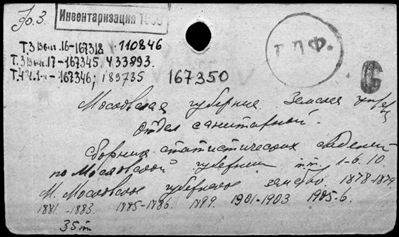 Fо.3.
Инвентаризация
Т.3 Вып.16-167318 V 110846
Т.3 Вып.17-167345, 433893.
Т.4 Ч.1-167346; 189735
167350
Г.П.Ф.
С
Московская губерния. Земская
Отдел санитарный.
Сборник статистических сведений
по Московской губернии тт. 1-6.10.
М. Московское губернское земство 1878-1879
1881-1883. 1885-1886. 1899. 1901-1903 1905-6.
35т